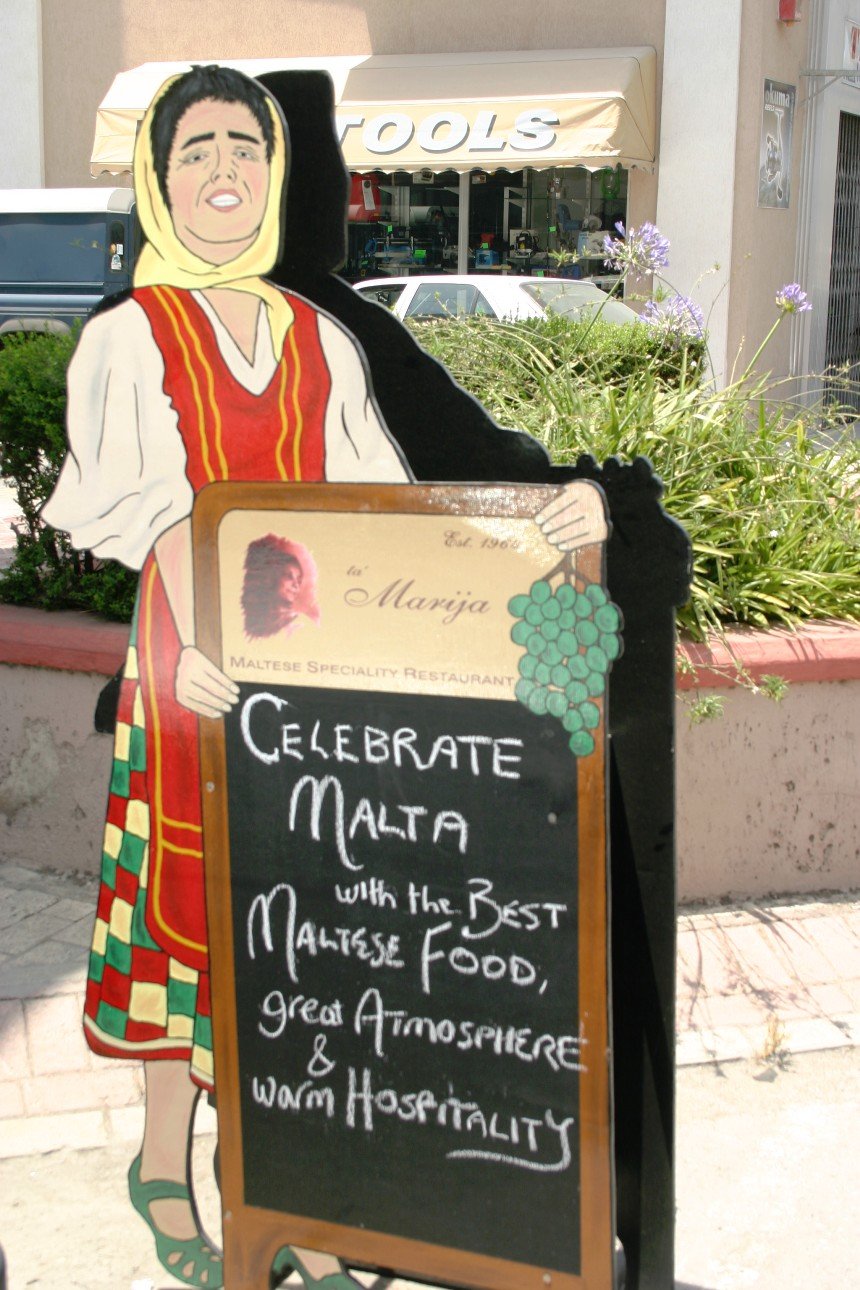 TOOLS
Est. 1964
ta'
Marija
MALTESE SPECIALITY RESTAURANT
CELEBRATE
MALTA
with the BEST
MALTESE FOOD,
great ATMOSPHERE
&
warm HOSPITALITY